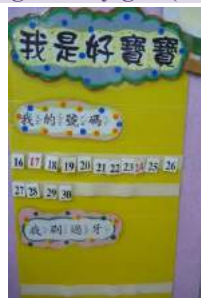 我是好寶寶
我的號碼
16 17 18 19 20 21 22 23 24 25 26
27 28 29 30
我刷過牙